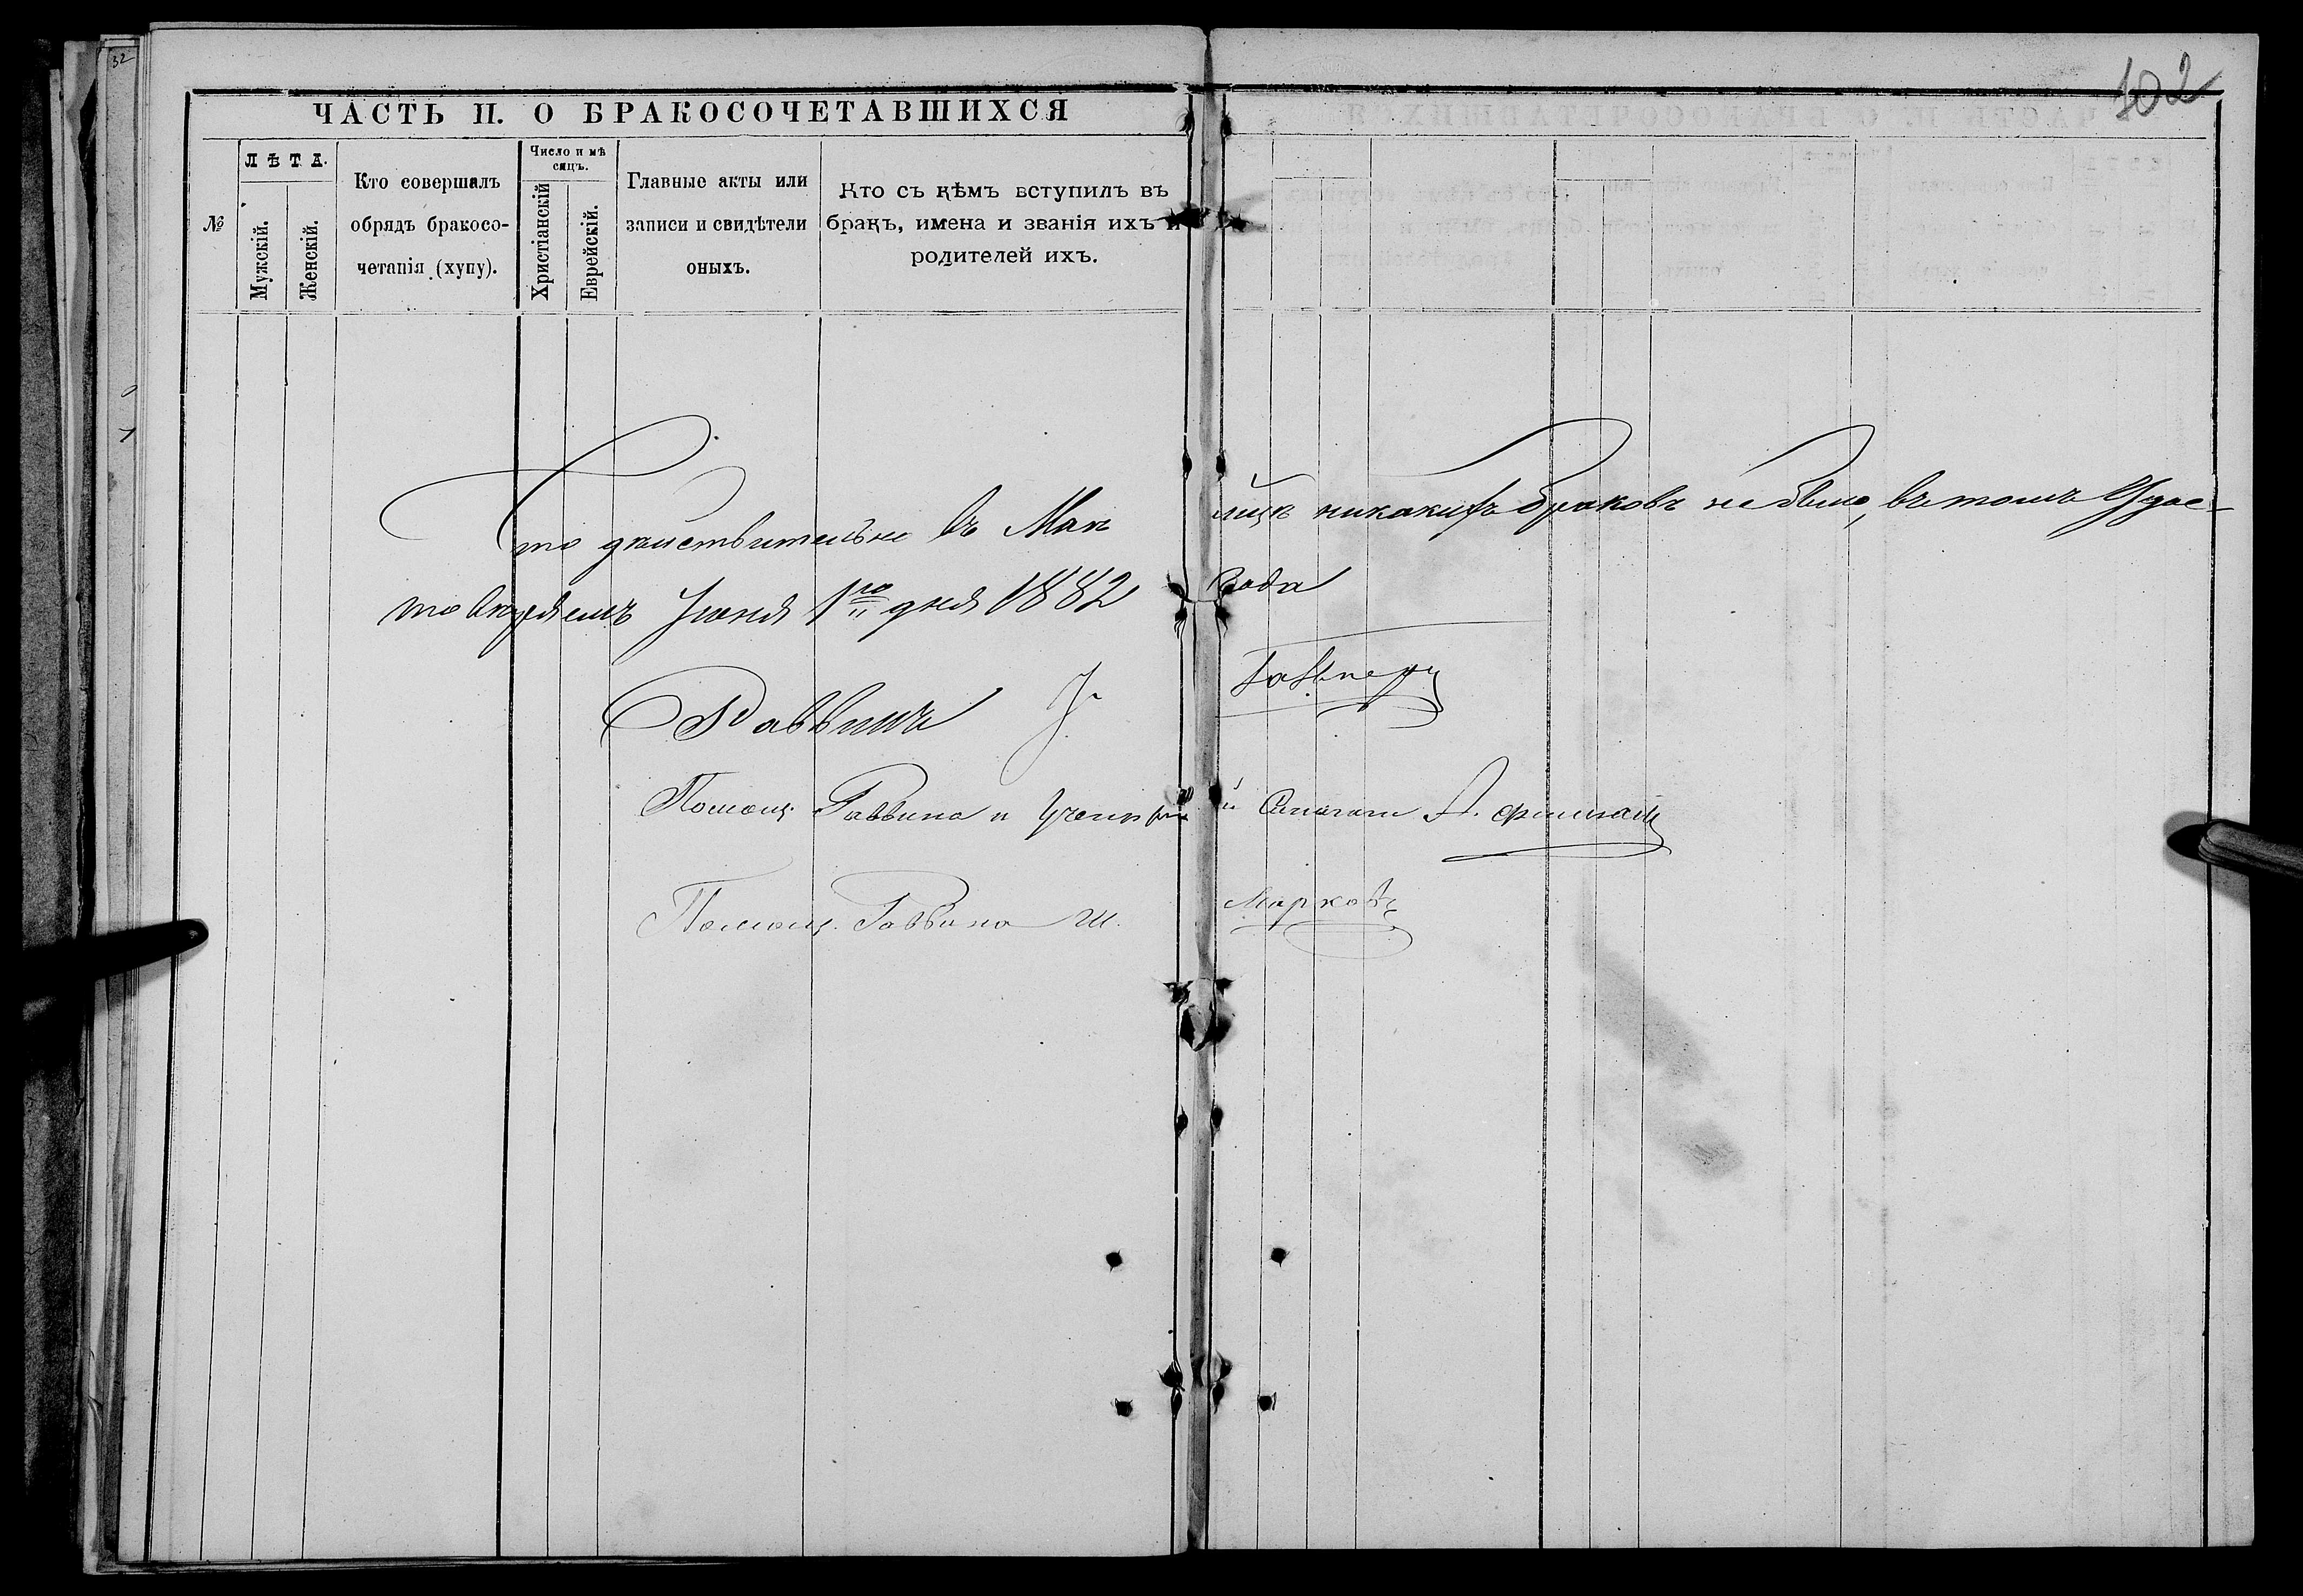 32
102
ЧАСТЬ II. О БРАКОСОЧЕТАВШИХСЯ
№
ЛѢТА.
Мужскій.
Женскій.
Кто совершалъ
обрядъ бракосо-
четанія (хупу).
Число и мѣ
сяцъ.
Христіанскій
Еврейскій.
Главные акты или
записи и свидѣтели
оныхъ.
Кто съ кѣмъ вступилъ въ
бракъ, имена и званія ихъ и
родителей ихъ.
Что дѣйствительно въ Маѣ мѣсяцѣ никакихъ браковъ не было, въ томъ Удос-
товѣряемъ Іюня 1го дня 1882 года
Раввинъ
Помощ. Раввина и
Помощ. Раввина Ш. Марковъ